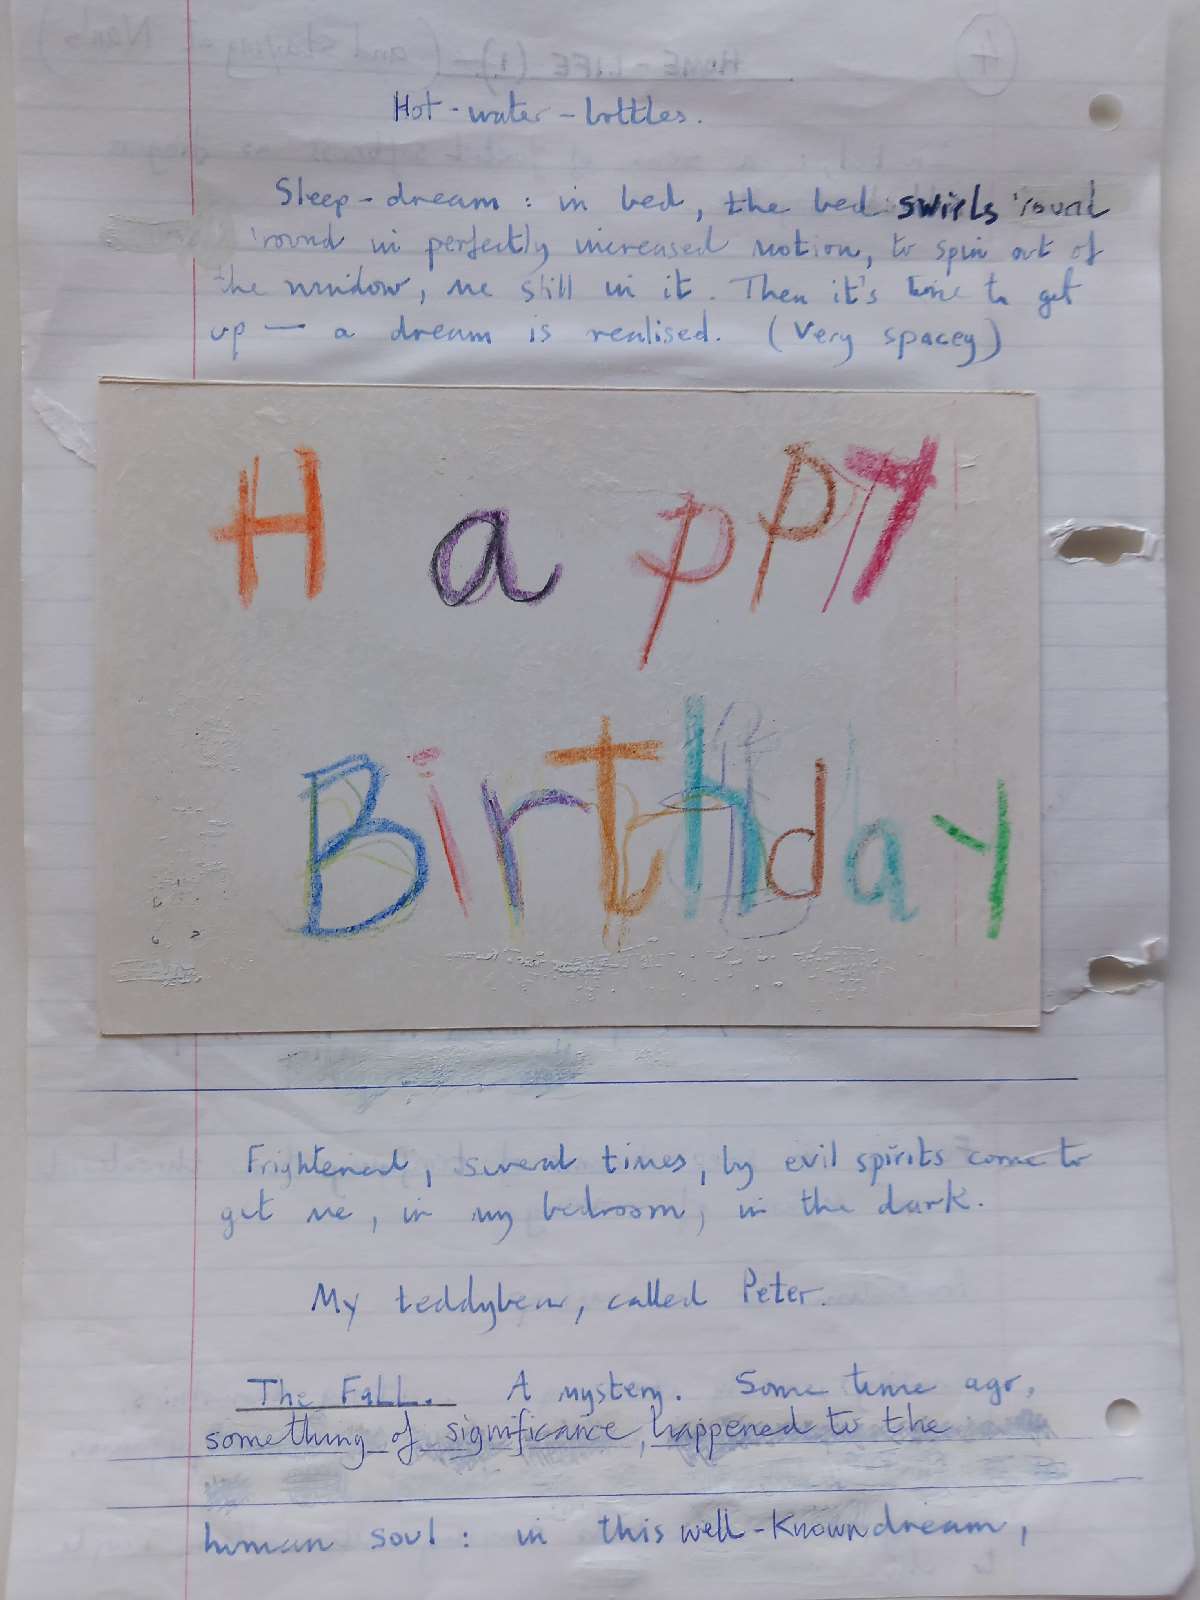 Hot-water-bottles.
Sleep-dream: in bed, the bed swirls 'round
'round in perfectly increased motion, to spin out of
the window, me still in it. Then it's time to get
up — a dream is realised. (Very spacey)
Happy
Birthday
Frightened, several times, by evil spirits come to
get me, in my bedroom, in the dark.
My teddybear, called Peter.
The Fall. A mystery. Some time ago,
something of significance, happened to the
human soul: in this well-known dream,